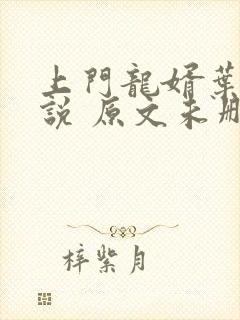 上門龍婿葉
說 原文未刪
梓紫月